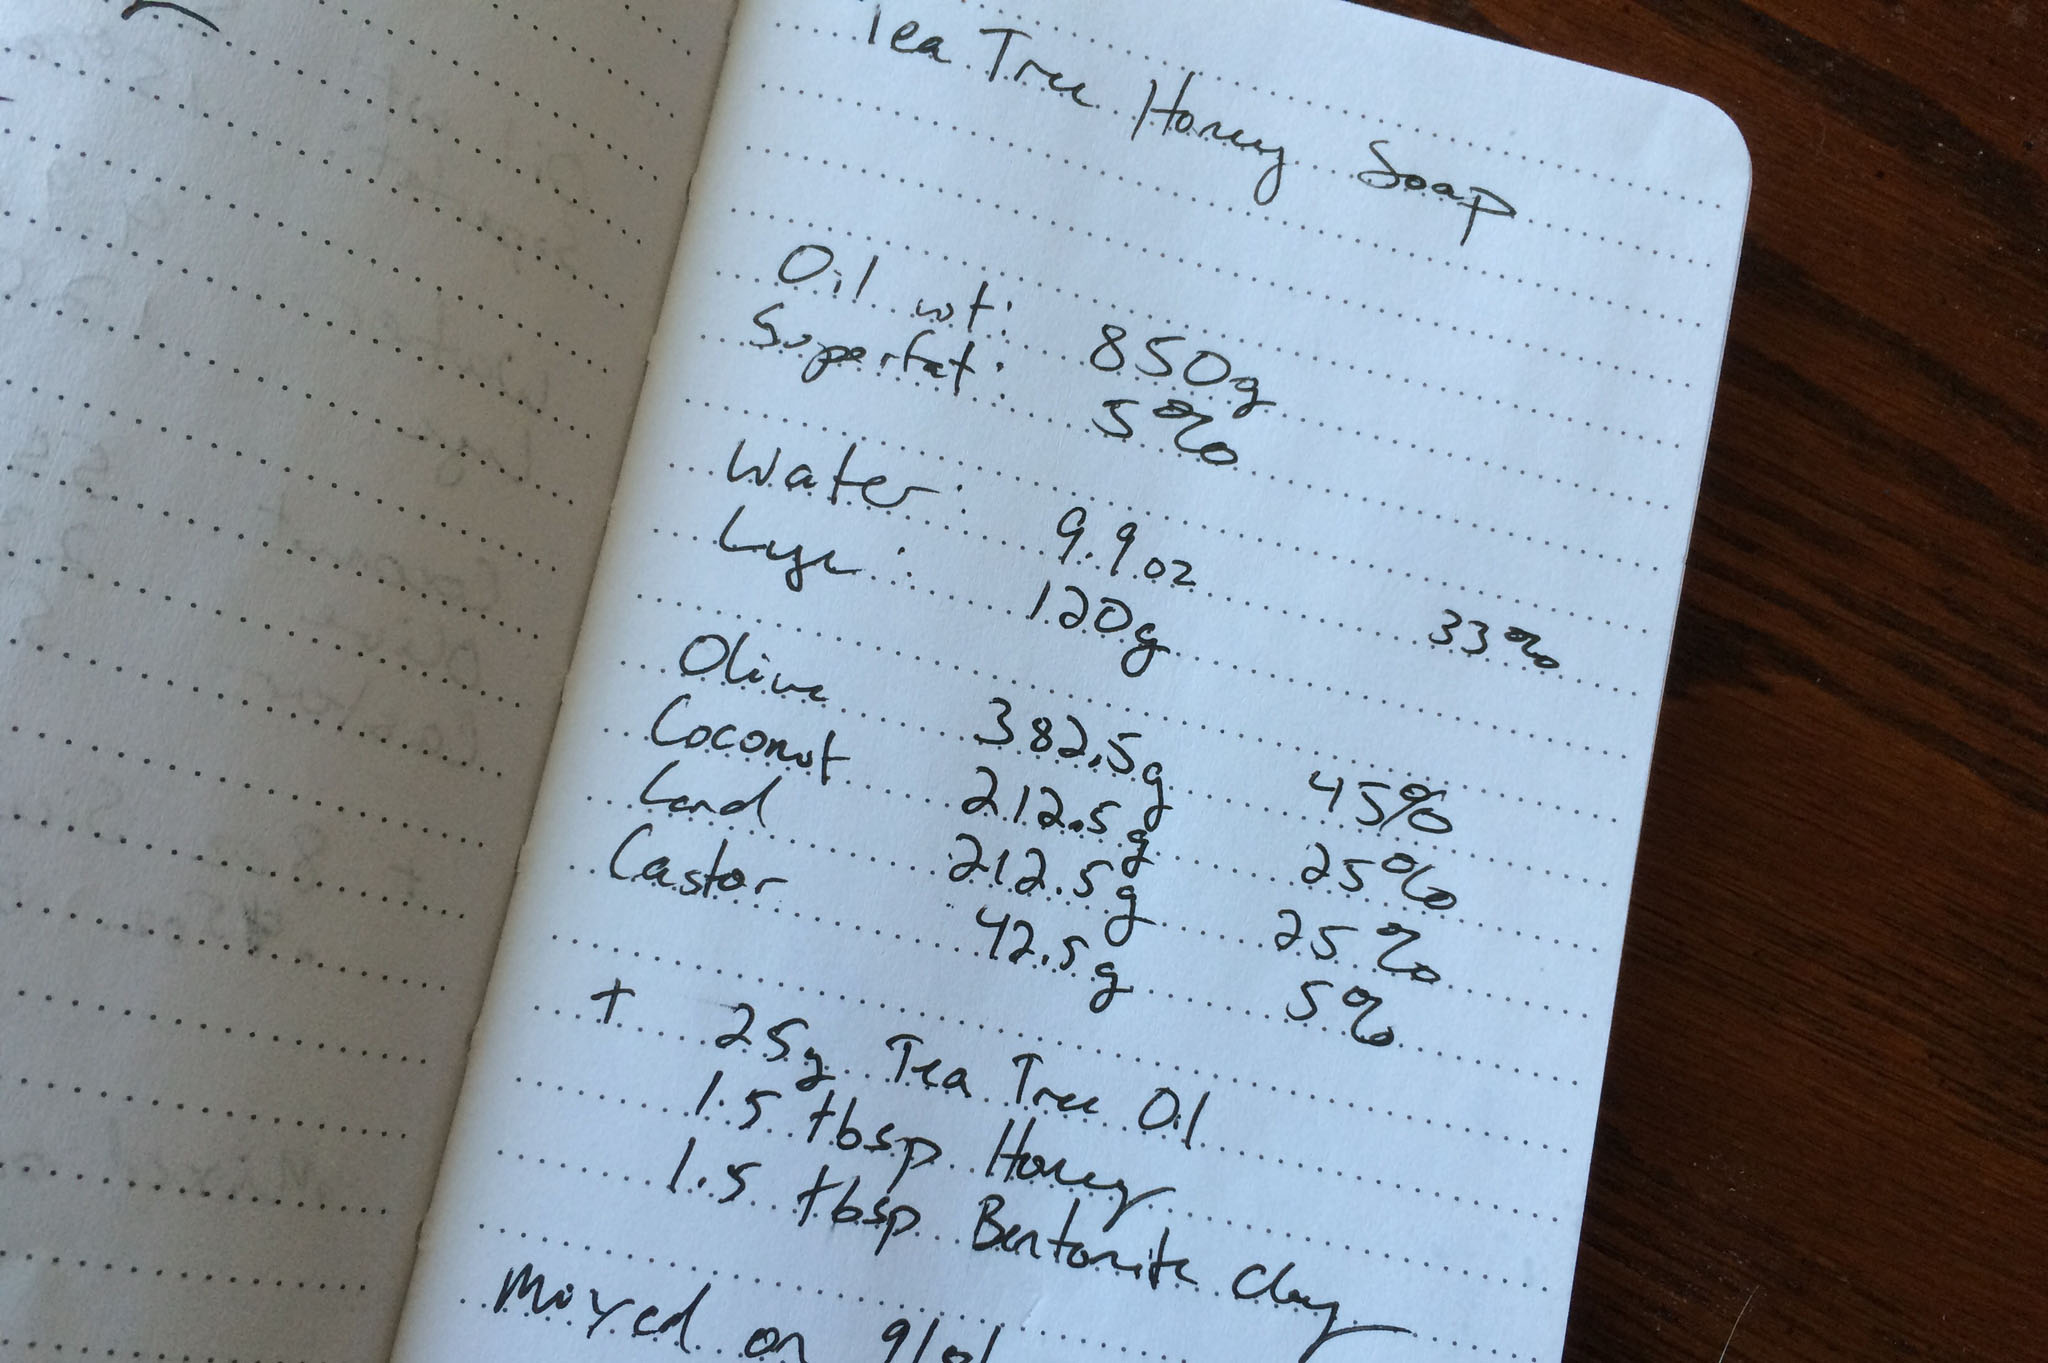 Tea Tree Honey Soap
Oil wt: 850g
Superfat: 5%
Water: 9.9oz 33%
Lye: 120g
Olive 382.5g 45%
Coconut 212.5g 25%
Lard 212.5g 25%
Castor 42.5g 5%
+ 25g Tea Tree Oil
1.5 tbsp Honey
1.5 tbsp Bentonite Clay
Mixed on